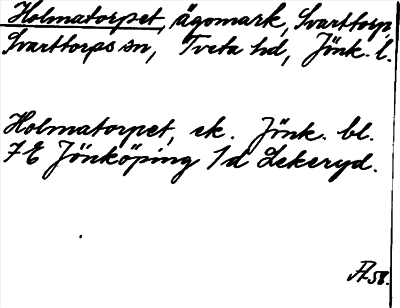 Holmatorpet, ägomark, Svarttorp,
Svarttorps sn, Tveta hd, Jönk. l.
Holmatorpet, ek. Jönk. bl.
7 E Jönköping 1 d Lekeryd.